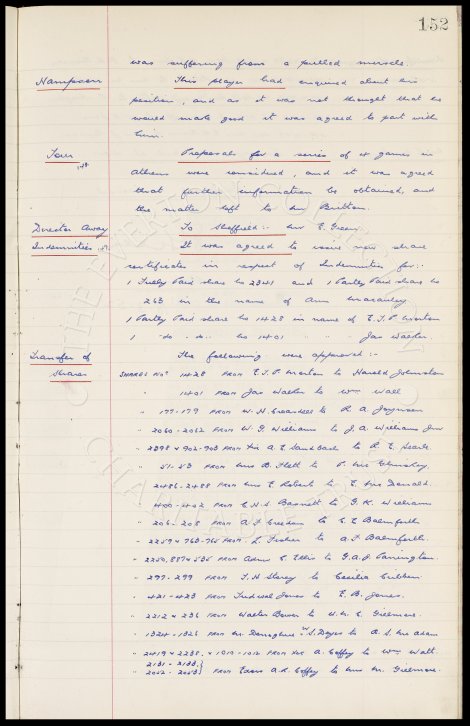 152
was suffering from a pulled muscle.
Hampson This player had enquired about his
position, and as it was not thought that he
would make good it was agreed to part with
him.
Tour Proposals for a series of 4 games in
Athens were considered, and it was agreed
that further information be obtained, and
the matter left to Mr Britton.
Director Away To Sheffield:- Mr E. Green.
Indemnities It was agreed to issue new share
certificates in respect of Indemnities for:-
1 Fully Paid share No 2341 and 1 Partly Paid share No
263 in the name of Ann Macauley
1 Partly Paid share No 1428 in name of E.J.P. Morton
1 - do - do - No 1401 Jas Walter
Transfer of The following were approved:-
Shares SHARES NOS 1428 FROM E.J.P. Morton to Harold Johnston
" 1401 FROM Jas Walter to Wm Wall
" 177-179 FROM W.H. to R.A. Joynson
" 2060-2062 FROM W.G. Williams to J.A. Williams Jnr
" 2398 & 902-903 FROM A.E. Sandbach to R.E. Searle
" 51-53 FROM Mrs B. Flett to
" 2486-2488 FROM Mrs E. Roberts to E. McDonald
" 400-402 FROM C.H.S. Barnett to G.K. Williams
" 206-208 FROM A.F. to C.E. Balmforth
" 2259 & 763-765 FROM L. Fisher to A.F. Balmforth.
" 2250, 887 & 535 FROM C. Ellis to G.A.J. Carrington.
" 297-299 FROM T.H. Storey to Cecilia Cribbin.
" 421-423 FROM Tudwal Jones to E.B. Jones.
" 2212 & 236 FROM Walter Bower to W.M.C. Gilmore.
" 1324-1326 FROM Mr Donoghue & W.S. Dozes to A.S. McAdam
" 2419 & 2238, & 1010-1012 FROM A. Coffey to Wm Wall.
" 2131-2133
" 2052-2053 FROM Exors A.R. Coffey to Mr Gilmore.
THE EVERTON COLLECTION
CHARITABLE TRUST